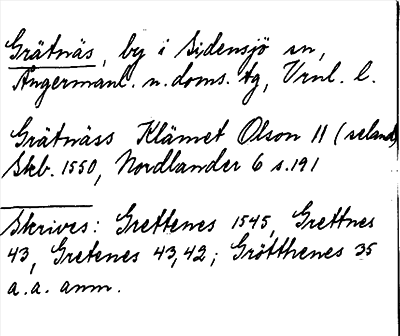 Grätnäs, by i Sidensjö sn,
Ångermanl. n. doms. tg, Vrnl. l.
Grätnäss Klämet Olson 11 (seland)
Skb. 1550, Nordlander 6 s. 191
Skrives: Grettenes 1545, Grettnes
43, Gretenes 43, 42; Grötthenes 35
a. a. anm.